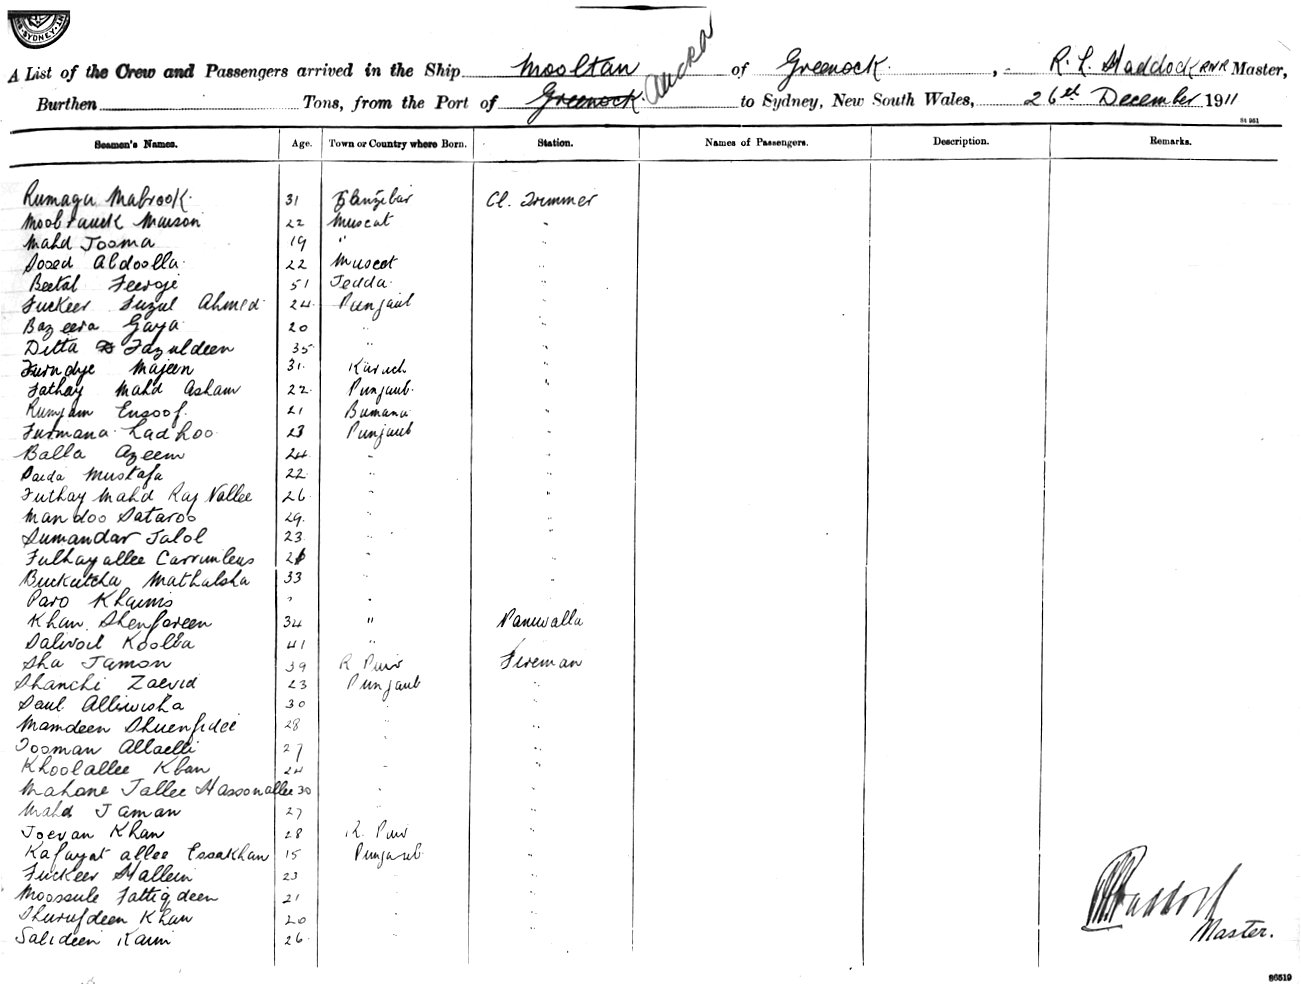 SYDNEY
A List of the Crew and Passengers arrived in the Ship Mooltan of Greenock, R. L. Haddock RNR Master,
Burthen Tons, from the Port of Greenock to Sydney, New South Wales, 26th December 1911
84 951
Seamen's Names. Age. Town or Country where Born. Station. Names of Passengers. Description. Remarks.
Rumagu Mabrook 31 Zanzibar Cl. Trimmer
Moobrauck Muison 22 Muscat "
Mahd Jooma 19 " "
Sosed Abdoolla 22 Muscat "
Beetal Feeroje 51 Jedda "
Fuckeer Fuzul Ahmed 24 Punjaub "
Bazeera Gaya 20 " "
Ditta Fazuldeen 35 " "
Furndye Majeen 31 Karach "
Fathay Mahd Asham 22 Punjaub "
Rumjam Eusoof 21 Bumana "
Furmana Ladhoo 23 Punjaub "
Balla Azeem 24 " "
Paida Mustafa 22 " "
Futhay Mahd Raj Vallee 26 " "
Mandoo Sataroo 29 " "
Sumandar Jalol 23 " "
Fulhayallee Carrumleus " "
Buckutcha Mathalsha 33 " "
Paro Khamis " " "
Khan Shenfareen 34 " Paniwalla
Salwoil Koolba 41 " "
Sha Jamon 39 R. Pur Fireman
Shanchi Zaevid 23 Punjaub "
Saul Alliwisha 30 " "
Mamdeen Shuenfidei 28 " "
Jooman Allaelli 27 " "
Khoolallee Khan 24 " "
Mahone Jallee Hassonallee 30 " "
Mahd Jaman 27 " "
Joevan Khan 28 R. Pur "
Kafayat allee Essakhan 15 Punjaub "
Fuckeer Hallein 23 " "
Moossule Fattigdeen 21 " "
Shurufdeen Khan 20 " "
Salideen Karim 26 " "
Haddock
Master.
86519